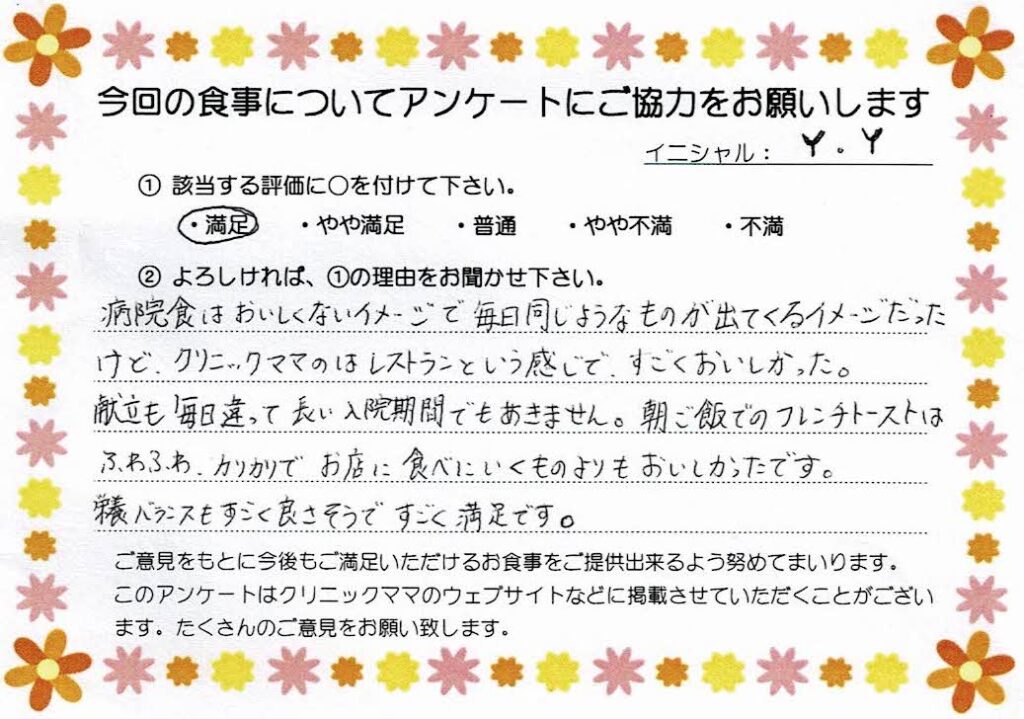 今回の食事についてアンケートにご協力をお願いします
イニシャル： Y.Y
① 該当する評価に○を付けて下さい。
・満足 ・やや満足 ・普通 ・やや不満 ・不満
② よろしければ、①の理由をお聞かせ下さい。
病院食はおいしくないイメージで毎日同じようなものが出てくるイメージだった
けど、クリニックママのはレストランという感じで、すごくおいしかった。
献立も毎日違って長い入院期間でもあきません。朝ご飯でのフレンチトーストは
ふわふわ、カリカリでお店に食べにいくものよりもおいしかったです。
栄養バランスもすごく良さそうですごく満足です。
ご意見をもとに今後もご満足いただけるお食事をご提供出来るよう努めてまいります。
このアンケートはクリニックママのウェブサイトなどに掲載させていただくことがござい
ます。たくさんのご意見をお願い致します。